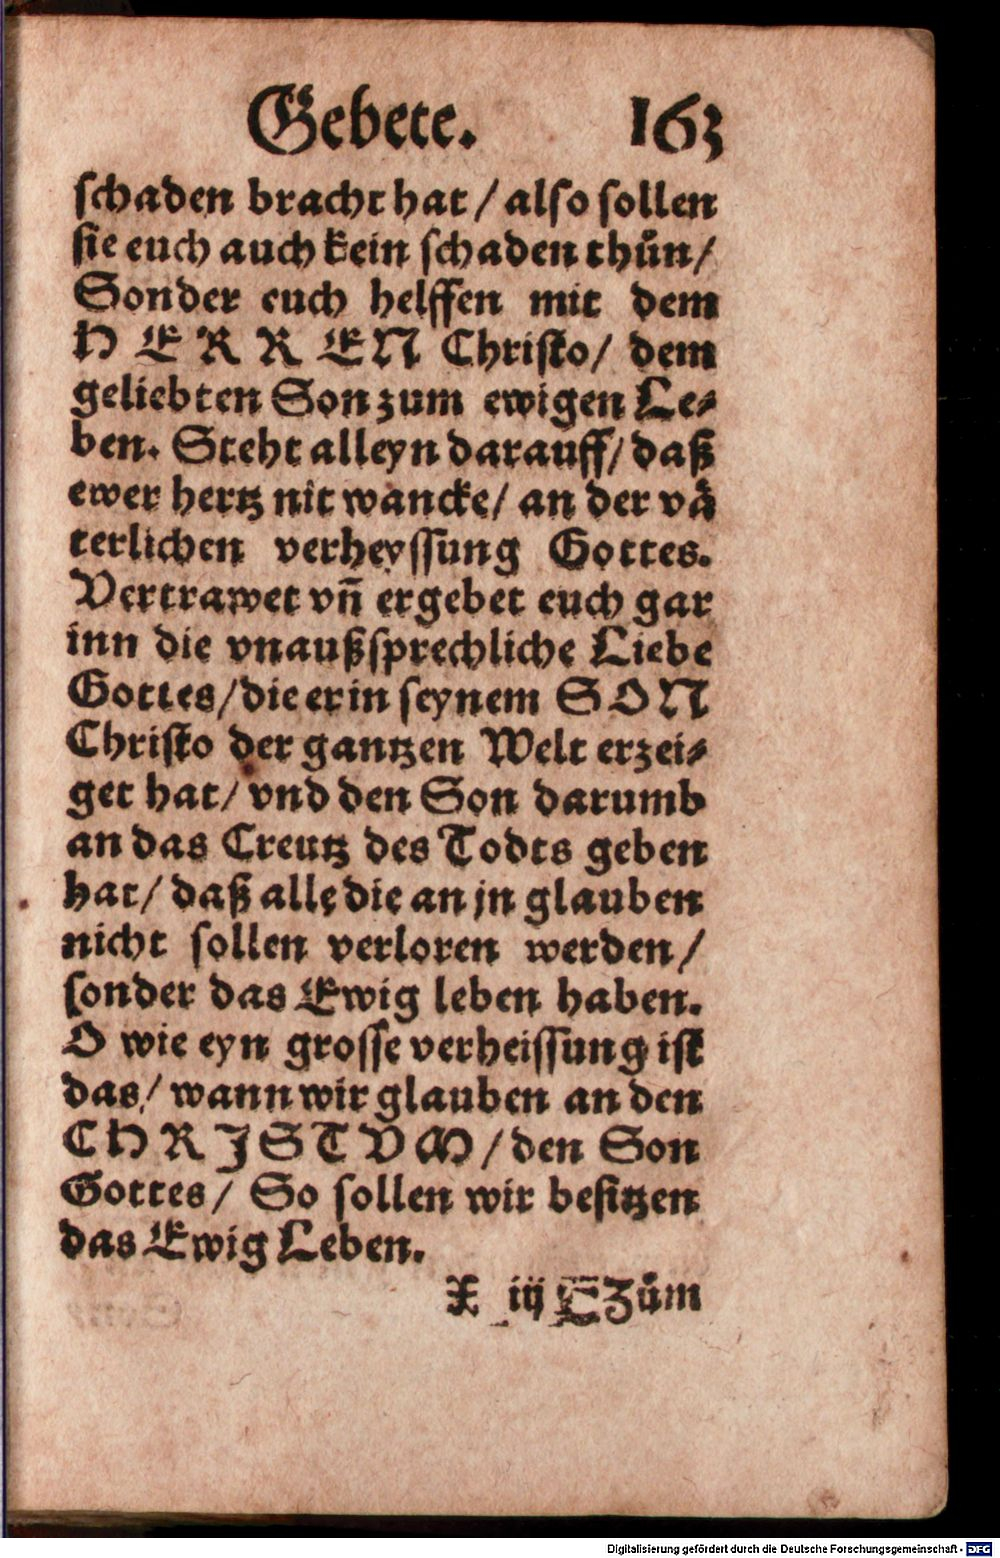 Gebete. 163
schaden bracht hat / also sollen
sie euch auch kein schaden thůn /
Sonder euch helffen mit dem
HERREN Christo / dem
geliebten Son zum ewigen Le⸗
ben. Steht alleyn darauff / daß
ewer hertz nit wancke / an der vä
terlichen verheyssung Gottes.
Vertrawet vñ ergebet euch gar
inn die vnaußsprechliche Liebe
Gottes / die er in seynem SON
Christo der gantzen Welt erzei⸗
get hat / vnd den Son darumb
an das Creutz des Todts geben
hat / daß alle die an jn glauben
nicht sollen verloren werden /
sonder das Ewig leben haben.
O wie eyn grosse verheissung ist
das / wann wir glauben an den
CHRISTVM / den Son
Gottes / So sollen wir besitzen
das Ewig Leben.
X iij CZům
Digitalisierung gefördert durch die Deutsche Forschungsgemeinschaft - DFG